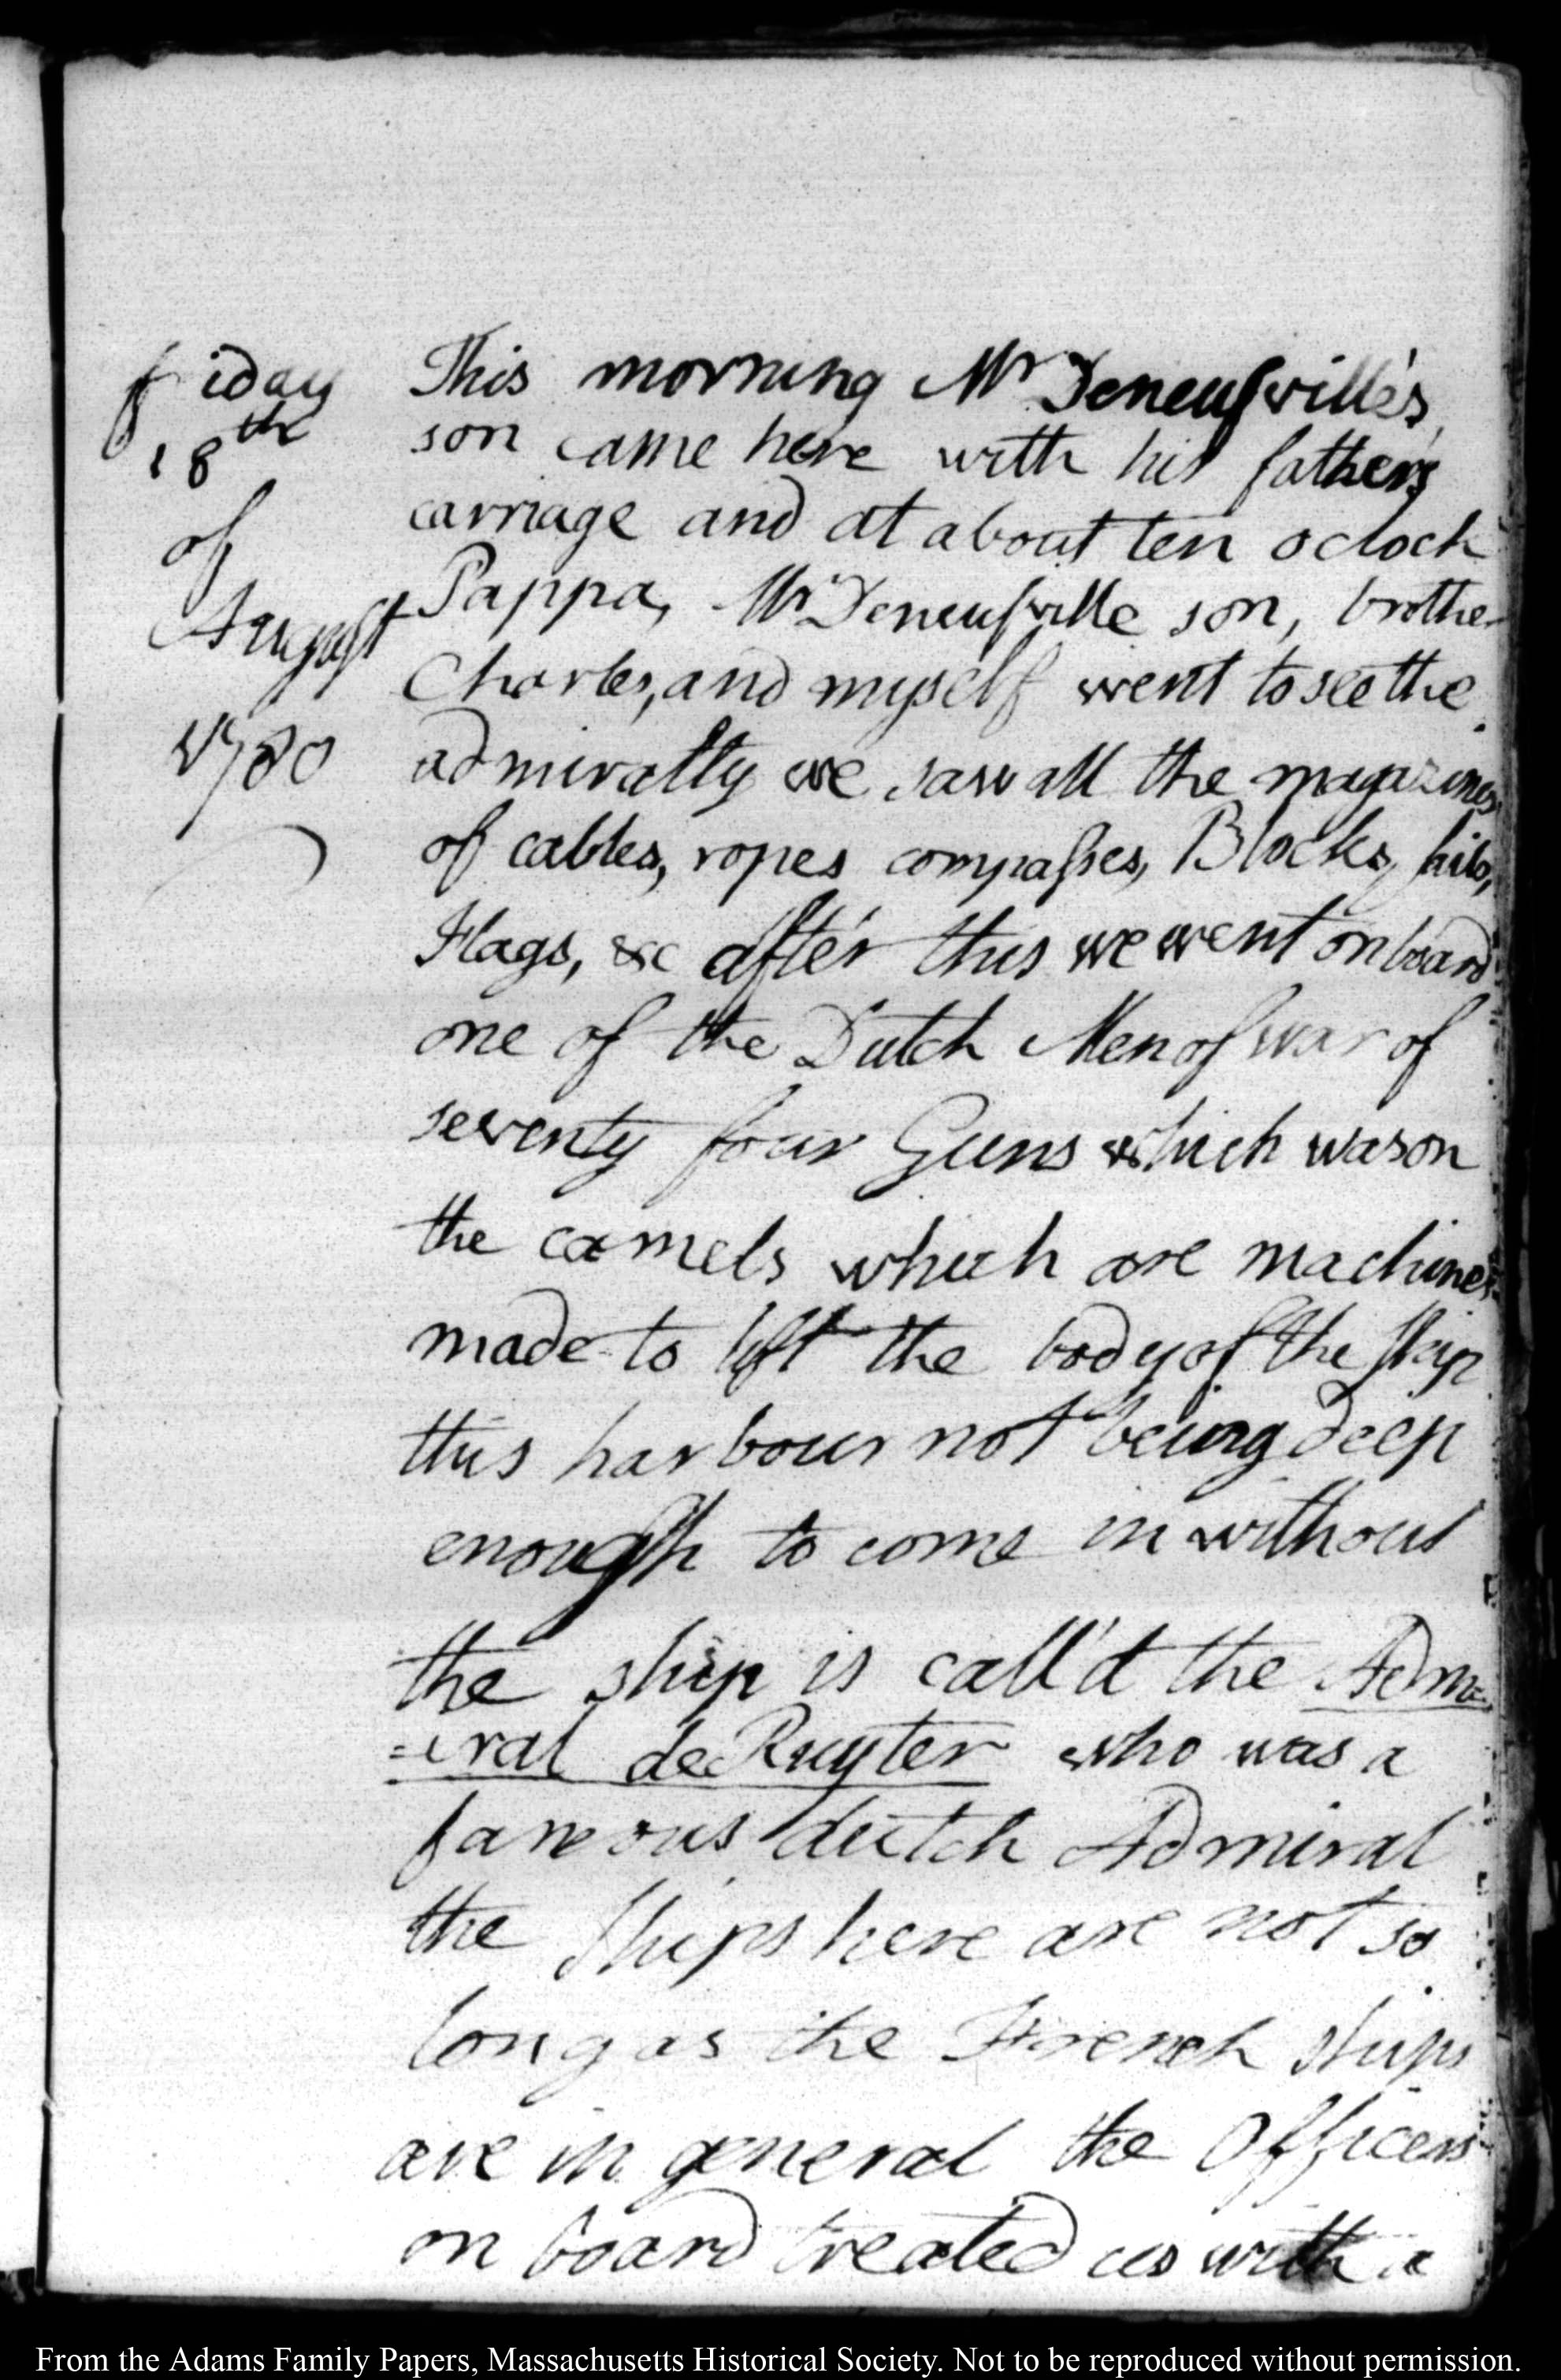 friday
18th
of
August
1780
This morning Mr Deneufville's
son came here with his father's
carriage and at about ten oclock
Pappa, Mr Deneufville son, brother
Charles, and myself went to see the
admiralty we saw all the magazines
of cables, ropes compasses, Blocks, sails,
Flags, &c after this we went on board
one of the Dutch Men of war of
seventy four Guns which was on
the camels which are machines
made to lift the body of the ship
this harbour not being deep
enough to come in without
the ship is call'd the Adm-
=iral de Ruyter who was a
famous dutch Admiral
the Ships here are not so
long as the French ships
are in general the Officers
on board treated us with a
From the Adams Family Papers, Massachusetts Historical Society. Not to be reproduced without permission.